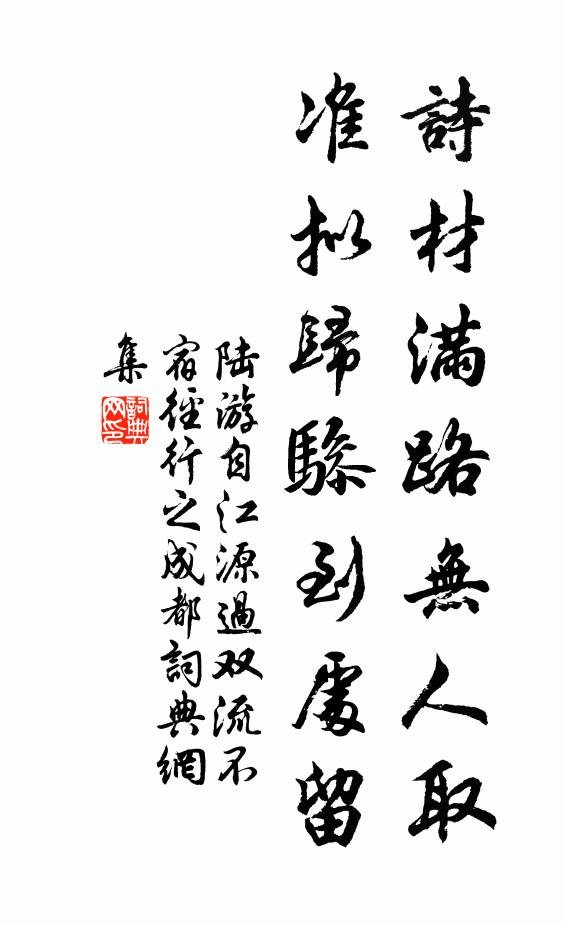 詩材滿路無人取
准拟歸驂到處留
陆游自江源過双流不
宿徑行之成都詞典網
集
詞典網印